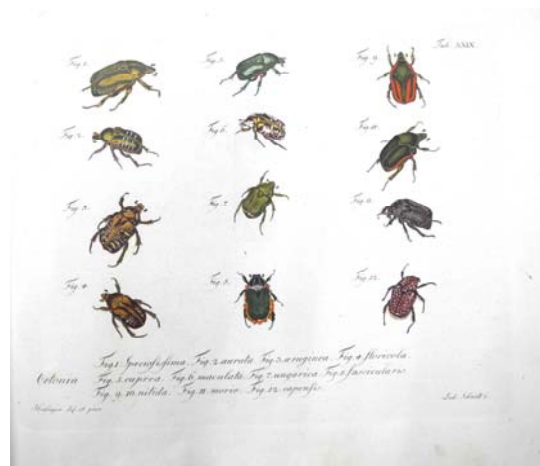 Tab. XXIX.
Fig. 1.
Fig. 5.
Fig. 9.
Fig. 2.
Fig. 6.
Fig. 10.
Fig. 3.
Fig. 7.
Fig. 11.
Fig. 4.
Fig. 8.
Fig. 12.
Fig. 1. Speciosissima. Fig. 2. aurata. Fig. 3. aeruginea. Fig. 4. floricola.
Cetonia Fig. 5. cuprea. Fig. 6. maculata. Fig. 7. ungarica. Fig. 8. fascicularis
Fig. 9. 10. nitida. Fig. 11. morio. Fig. 12. capensis.
del. et pinx.
Schmidt